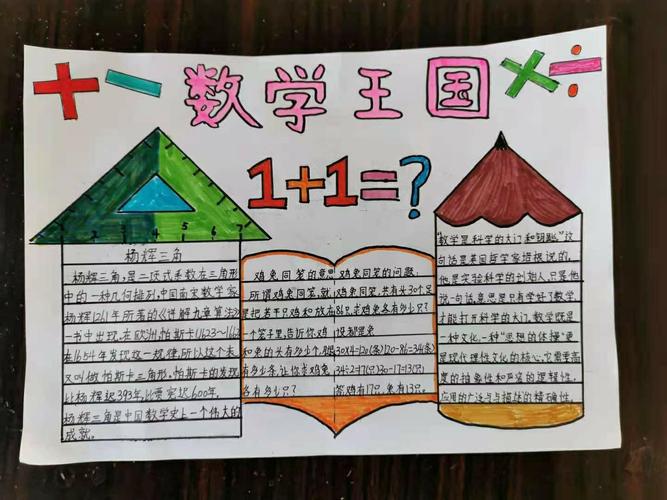 + − 数学王国 × ÷
1+1=?
1 2 3 4 5 6 7
杨辉三角
杨辉三角,是二项式系数在三角形
中的一种几何排列,中国南宋数学家
杨辉1261年所著的《详解九章算法》
一书中出现,在欧洲,帕斯卡(1623~1662
在1654年发现这一规律,所以这个表
又叫做帕斯卡三角形。帕斯卡的发现
比杨辉迟393年,比贾宪迟600年。
杨辉三角是中国数学史上一个伟大的
成就。
鸡兔同笼的意思
所谓鸡兔同笼,就
是把若干只鸡和放在
一个笼子里,告诉你,鸡
和兔的头有多少个,腿
有多少条,让你求鸡兔
各有多少只?
鸡兔同笼的问题.
鸡兔同笼,共有头30个,足
8只,求鸡兔各有多少只?
设都是兔
30×4=120(条)120-86=34(条)
34÷2=17(只)30-17=13(只)
答鸡有17只,兔有13只。
"数学是科学的大门和钥匙"这
句话是英国哲学家培根说的,
他是实验科学的创始人,只是他
说一句话,意思是只有学好了数学,
才能打开科学的大门。数学既是
一种文化,一种"思想的体操"更
是现代理性文化的核心,它需要高
度的抽象性和严密的逻辑性,
应用的广泛与描述的精确性。